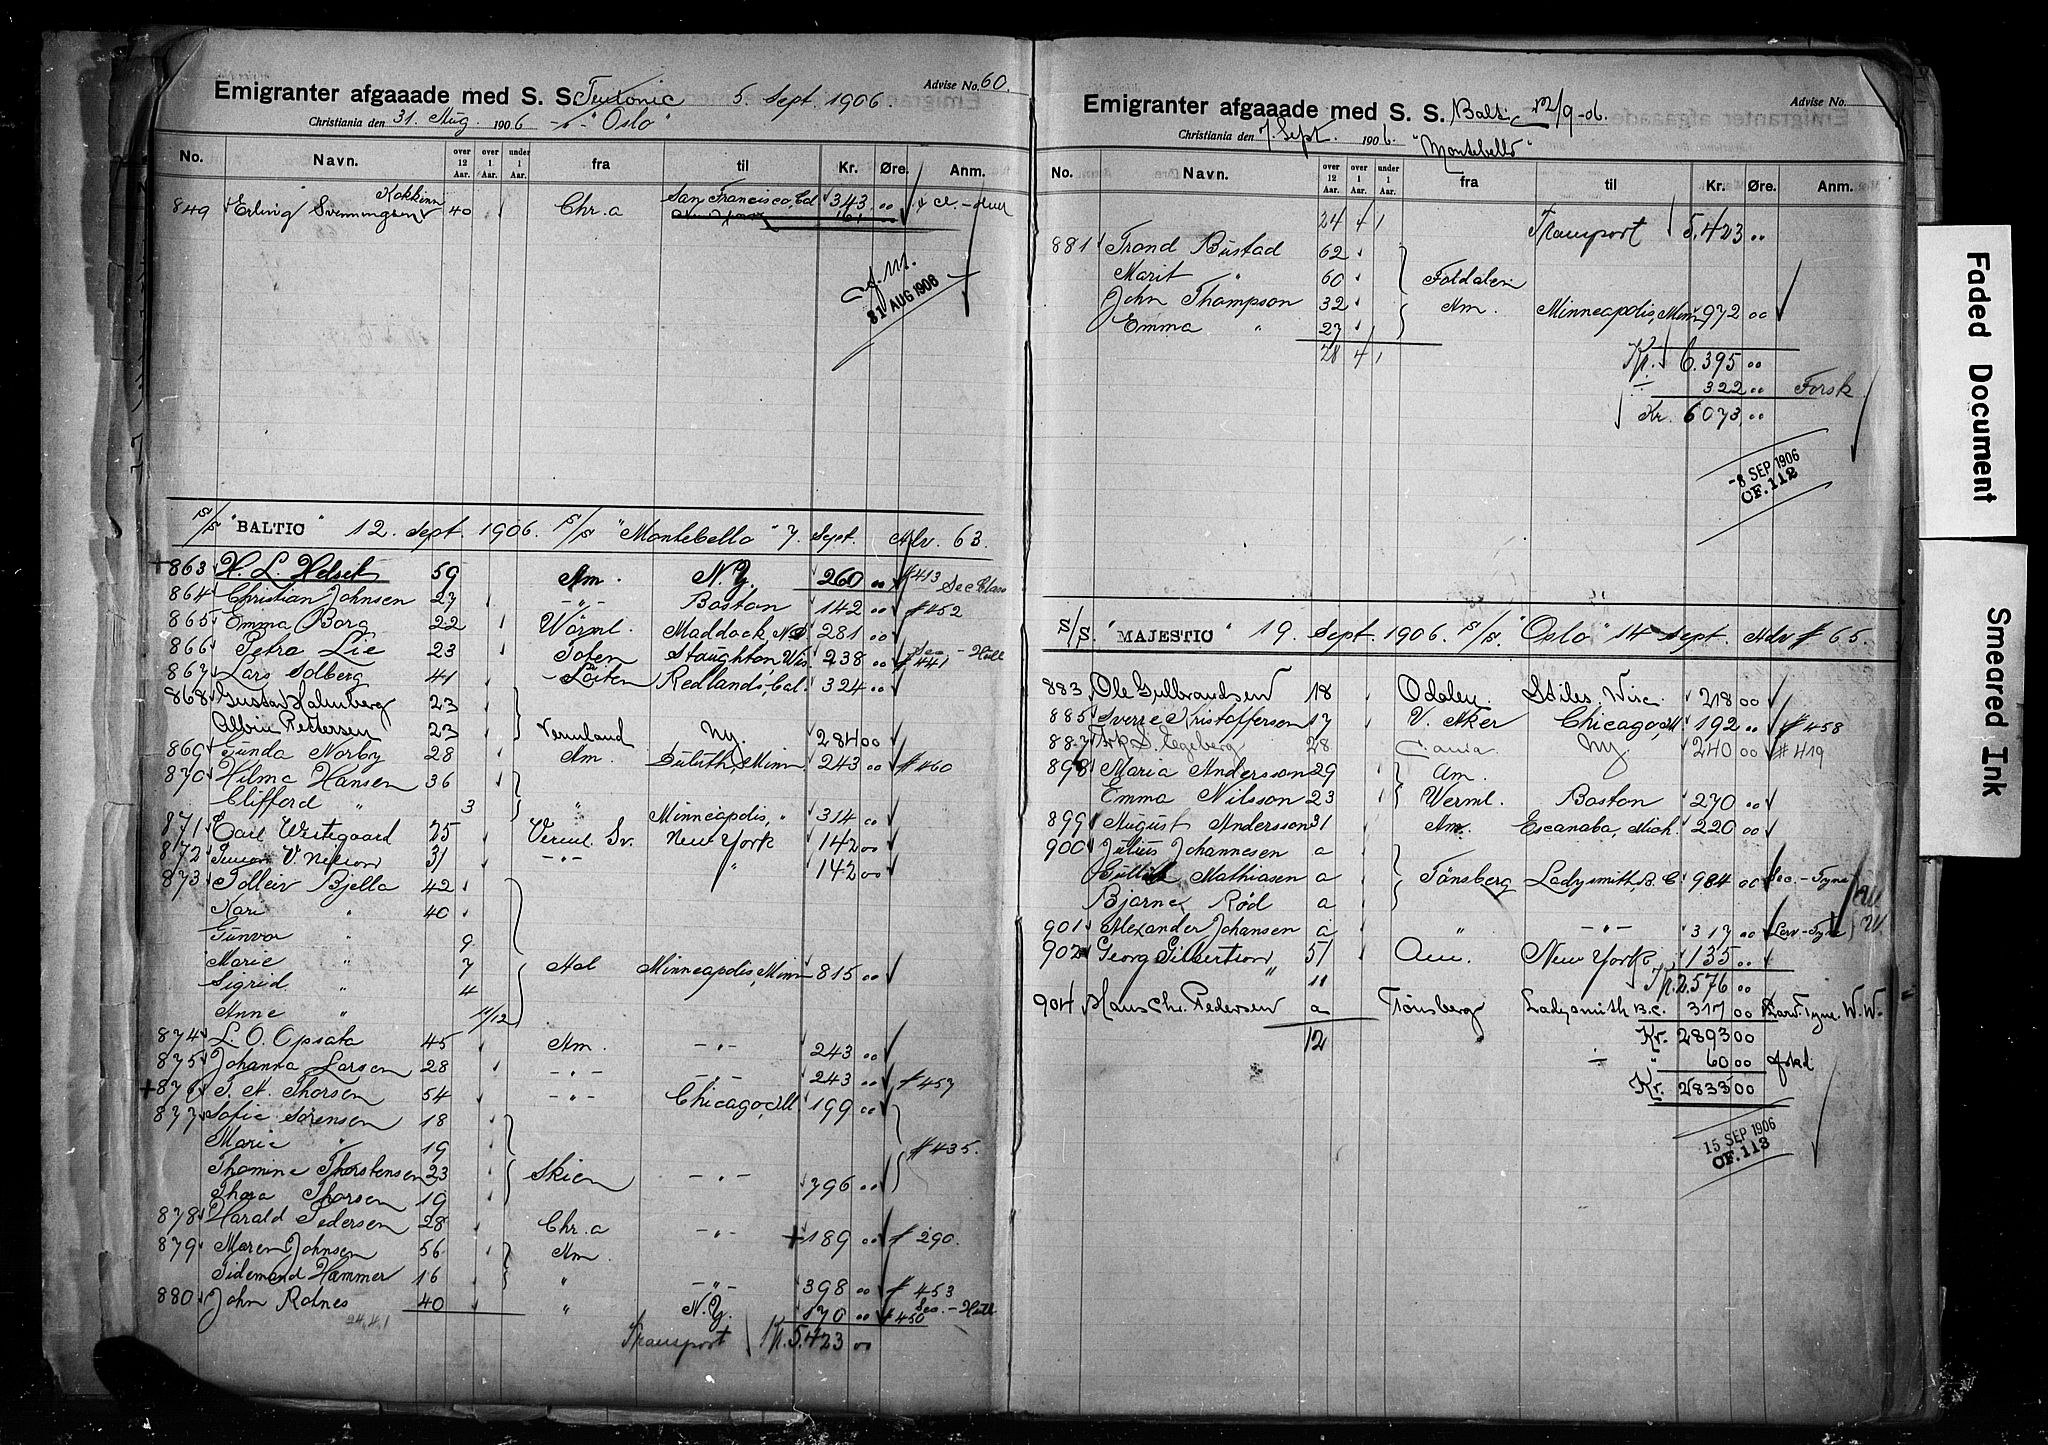 Advise No. 60.
Emigranter afgaaade med S. S. Teutonic 5 Sept. 1906
Christiania den 31. Aug. 1906 "Oslo"
No. Navn. over 12 Aar. over 1 Aar. under 1 Aar. fra til Kr. Øre. Anm.
849 Erling Svenningsen 40 Chr.a San Francisco, Cal 343 00
31 AUG 1906
S/S "BALTIC" 12. Sept. 1906. S/S "Montebello" 7. Sept. Adv. 63.
863 H. L. Helset 59 Am. N.Y. 260 00 #413 Sec Class
864 Christian Johnsen 27 -"- Boston 142 00 #452
865 Emma Borg 22 Wörml. Maddock N.D. 281 00
866 Petra Lie 23 Toten Stoughton Wis 238 00 #441 Sec - Hull
867 Lars Solberg 41 Löiten Redlands, Cal. 324 00
868 Gustaf Malmberg 23
Albin Pettersen 23 Vermland Ny. 284 00
869 Gunda Norby 28 Am. Duluth, Minn. 243 00 #460
870 Hilma Hansen 36
Clifford " 3 " Minneapolis, " 314 00
871 Carl Westegaard 25 Verml. Sv. New York 142 00
872 V. Nelson 31 -"- " 142 00
873 Tolleiv Bjella 42
Kari " 40
Gunvor " 9
Marie " 7 Aal Minneapolis, Minn 815 00
Sigrid " 4
Anne " 11/12
874 L. O. Opsata 45 Am. -"- 243 00
875 Johanna Larsen 28 -"- -"- 243 00 #457
876 T. A. Thorsen 54 -"- Chicago, Ill 199 00
877 Sofie Sörensen 18
Marie " 19 #435.
Thomine Thorstensen 23 Skien -"- 796 00
Thora Thorsen 19
878 Harald Pedersen 28 Chr.a -"- 189 00 # 290.
879 Maren Johnsen 56 Am.
Tidemand Hammer 16 " -"- 398 00 #453
880 John Rolnes 40 " N.Y. 170 00 #450 Sec. - Hull
24.4.1
Transport Kr. 5.423 00
Advise No.
Emigranter afgaaade med S. S. Baltic 12/9-06.
Christiania den 7. Sept. 1906. "Montebello"
No. Navn. over 12 Aar. over 1 Aar. under 1 Aar. fra til Kr. Øre. Anm.
24 4 1 Transport 5.423 00
881 Trond Bustad 62
Marit " 60 Foldalen
John Thompson 32 Am. Minneapolis, Minn 972 00
Emma " 27
28 4 1 Kr. 6.395 00
÷ 322 00 Forsk
Kr. 6073 00
-8 SEP 1906
OF. 112
S/S. "MAJESTIC" 19. Sept. 1906. S/S. "Oslo" 14 Sept. Adv # 65.
883 Ole Gulbrandsen 18 Odalen. Stiles, Wisc. 218 00
885 Sverre Kristoffersen 17 V. Aker Chicago, Ill 192 00 #458
887 S. Egeberg 28 Ny 240 00 #419
898 Maria Andersson 29 Am.
Emma Nilsson 23 Werml. Boston 270 00
899 August Andersson 31 Am. Escanaba, Mich. 220 00
900 Julius Johannesen a
Gullik Mathiasen a Tönsberg Ladysmith, B.C. 984 00 Sec. - Tyne
Bjarne Rød a
901 Alexander Johansen a " -"- 317 00 Larv - Tyne
902 Georg Gilbertson 51 Am. New York 135 00
11 Kr. 2.576 00
904 Hans Chr. Pedersen a Tønsberg Ladysmith B.C. 317 00 Larv. Tyne W.W.
12 Kr. 2893 00
÷ " 60 00 afskd
Kr. 2833 00
15 SEP 1906
OF. 113
Faded Document
Smeared Ink